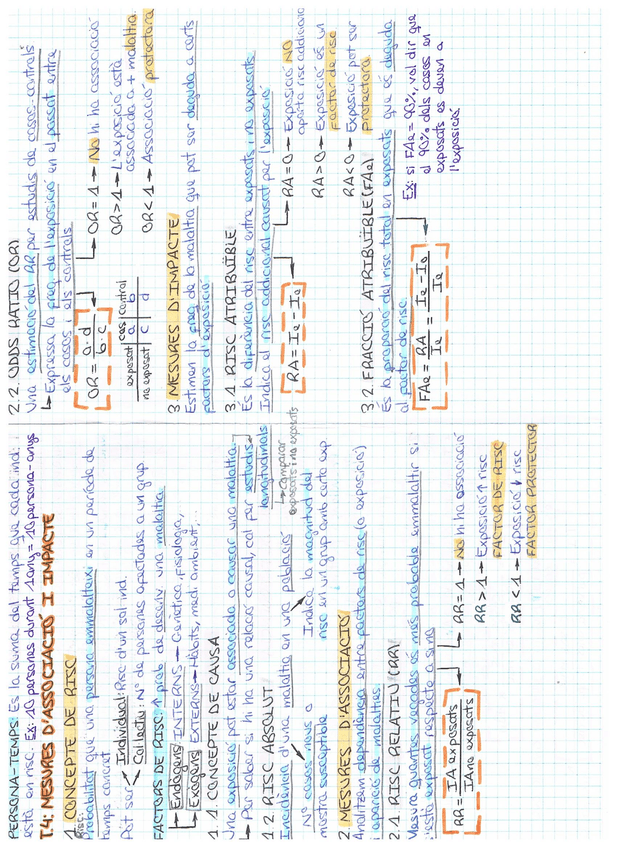 PERSONA-TEMPS: És la suma del temps que cada ind.
està en risc. Ex: 10 persones durant 1 any = 10 persona-anys
T.4: MESURES D'ASSOCIACIÓ I IMPACTE
1. CONCEPTE DE RISC
Risc:
Probabilitat que una persona emmalalteixi en un període de
temps concret
Pot ser
Individual: Risc d'un sol ind.
Col·lectiu: Nº de persones afectades a un grup
FACTORS DE RISC: ↑ prob. de desenv. una malaltia.
Endògens INTERNS → Genètica, fisiologia,
Exògens EXTERNS → Hàbits, medi ambient,...
1.1. CONCEPTE DE CAUSA
Una exposició pot estar associada a causar una malaltia.
↳ Per saber si hi ha una relació causal, cal fer estudis
longitudinals
↳ comparar
exposats i no exposats
1.2. RISC ABSOLUT
Incidència d'una malaltia en una població
Nº casos nous a
mostra susceptible
Indica la magnitud del
risc en un grup amb certa exp
2. MESURES D'ASSOCIACIÓ
Analitzem dependència entre factors de risc (o exposició)
i aparició de malalties
2.1. RISC RELATIU (RR)
Mesura quantes vegades és més probable emmalaltir si
s'està exposat respecte a sinó
RR = IA exposats / IA no exposats
RR = 1 → No hi ha associació
RR > 1 → Exposició ↑ risc
FACTOR DE RISC
RR < 1 → Exposició ↓ risc
FACTOR PROTECTOR
2.2. ODDS RATIO (OR)
Una estimació del RR per estudis de casos-controls
↳ Expressa la freq. de l'exposició en el passat entre
els casos i els controls
OR = a·d / b·c
cas control
exposat a b
no exposat c d
OR = 1 → No hi ha associació
OR > 1 → L'exposició està
associada a + malaltia.
OR < 1 → Associació protectora
3. MESURES D'IMPACTE
Estimen la freq. de la malaltia que pot ser deguda a certs
factors d'exposició
3.1. RISC ATRIBUÏBLE
És la diferència del risc entre exposats i no exposats
Indica el risc addicional causat per l'exposició
RA = Ie - Io
RA = 0 → Exposició NO
aporta risc addicional
RA > 0 → Exposició és un
factor de risc
RA < 0 → Exposició pot ser
protectora.
3.2. FRACCIÓ ATRIBUÏBLE (FAe)
És la proporció del risc total en exposats que és deguda
al factor de risc
FAe = RA / Ie = Ie - Io / Ie
Ex: si FAe = 90%, vol dir que
el 90% dels casos en
exposats es deuen a
l'exposició